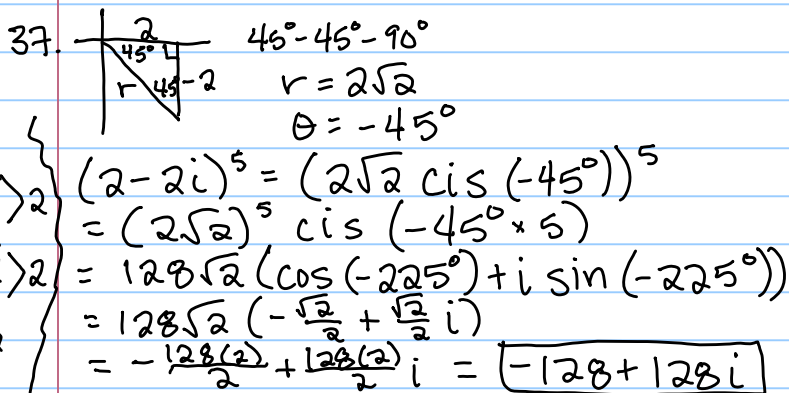 37. 2 45°-45°-90°
45°
r 45 -2 r = 2√2
θ = -45°
(2-2i)⁵ = (2√2 cis (-45°))⁵
>2
= (2√2)⁵ cis (-45° × 5)
>2 = 128√2 (cos (-225°) + i sin (-225°))
= 128√2 (-√2/2 + √2/2 i)
= -128(2)/2 + 128(2)/2 i = -128 + 128i